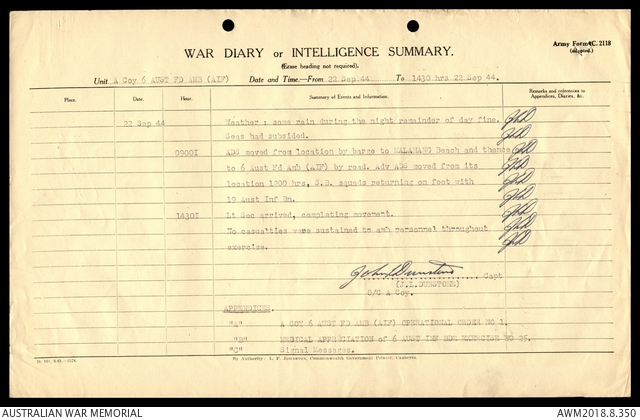 Army Form C. 2118
(adapted.)
WAR DIARY or INTELLIGENCE SUMMARY.
(Erase heading not required).
Unit A Coy 6 AUST FD AMB (AIF) Date and Time.—From 22 Sep 44 To 1430 hrs 22 Sep 44.
Place. Date. Hour. Summary of Events and Information. Remarks and references to Appendices, Diaries, &c.
22 Sep 44 Weather : some rain during the night remainder of day fine. JLD
Seas had subsided. JLD
0900I ADS moved from location by barge to MALAHANG Beach and thence JLD
to 6 Aust Fd Amb (AIF) by road. Adv ADS moved from its JLD
location 1200 hrs, S.B. squads returning on foot with JLD
19 Aust Inf Bn. JLD
1430I Lt Sec arrived, completing movement. JLD
No casualties were sustained to amb personnel throughout JLD
exercise. JLD
John L Dunstone Capt
(J.L. DUNSTONE)
O/C A Coy.
APPENDICES.
"A" A COY 6 AUST FD AMB (AIF) OPERATIONAL ORDER NO 1.
"B" MEDICAL APPRECIATION of 6 AUST INF BDE EXERCISE NO 25.
"C" Signal Messages.
By Authority: L. F. Johnston, Commonwealth Government Printer, Canberra.
AUSTRALIAN WAR MEMORIAL
AWM2018.8.350